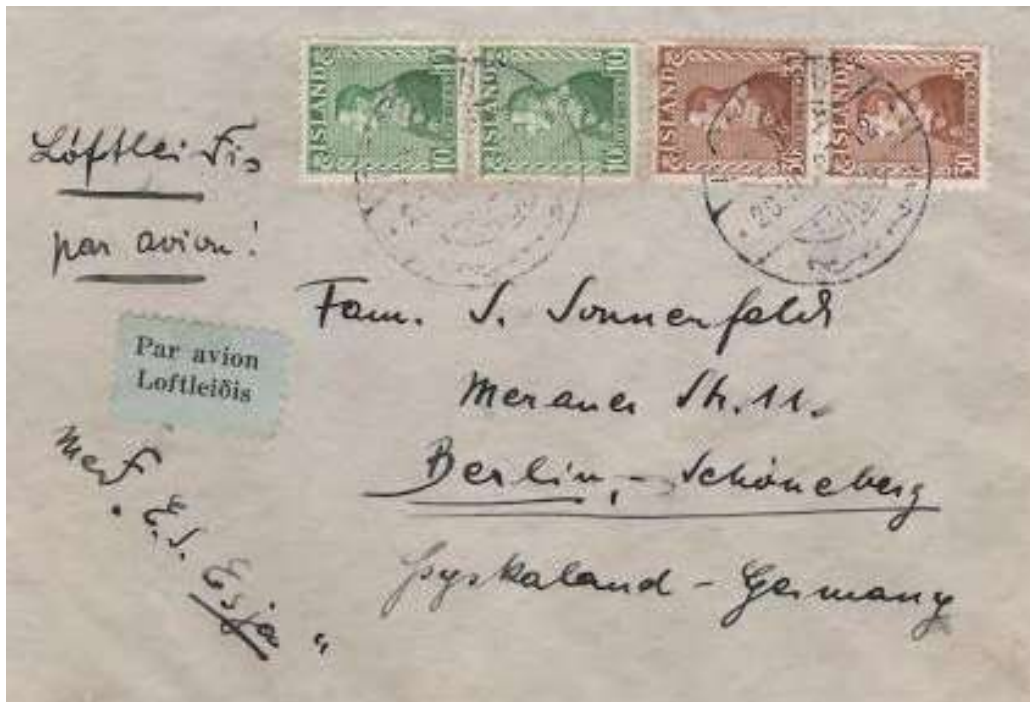 ISLAND 10 10
ISLAND 10 10
ISLAND 30
ISLAND 30
Loftleiðis
par avion!
Par avion
Loftleiðis
Með
E.s. Esja "
Fam. S. Sonnenfeld
Meraner Str. 11.
Berlin, - Schöneberg
Þyskaland - Germany